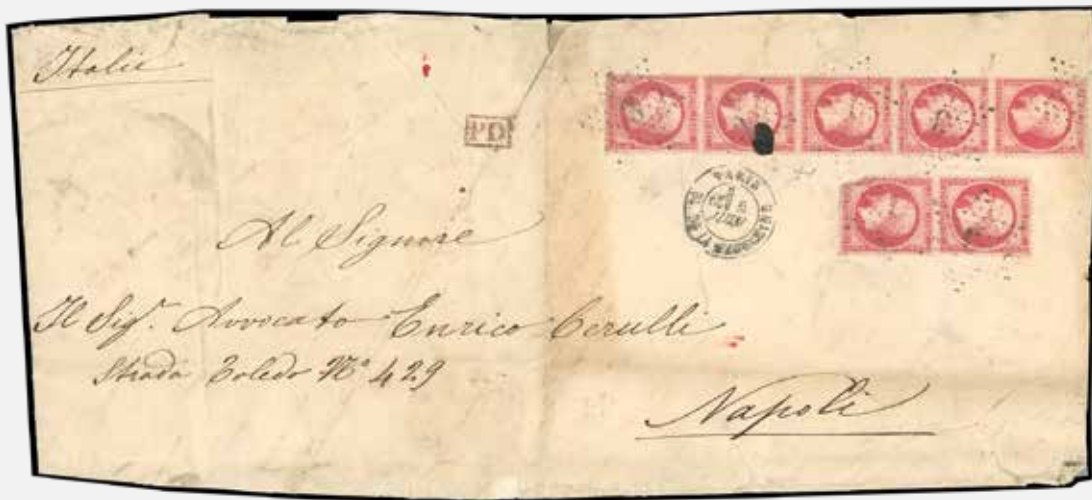 Italie
PD
PARIS
Al Signore
Il Sigr. Avvocato Enrico Cerulli
Strada Toledo No 429
Napoli